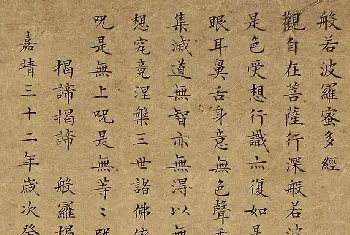 般若波羅蜜多經
觀自在菩薩行深般若波
是色受想行識亦復如是
眼耳鼻舌身意無色聲
集滅道無智亦無得以無
想究竟涅槃三世諸佛
呪是無上呪是無等〻
揭諦揭諦 般羅揭
嘉靖三十二年歲次